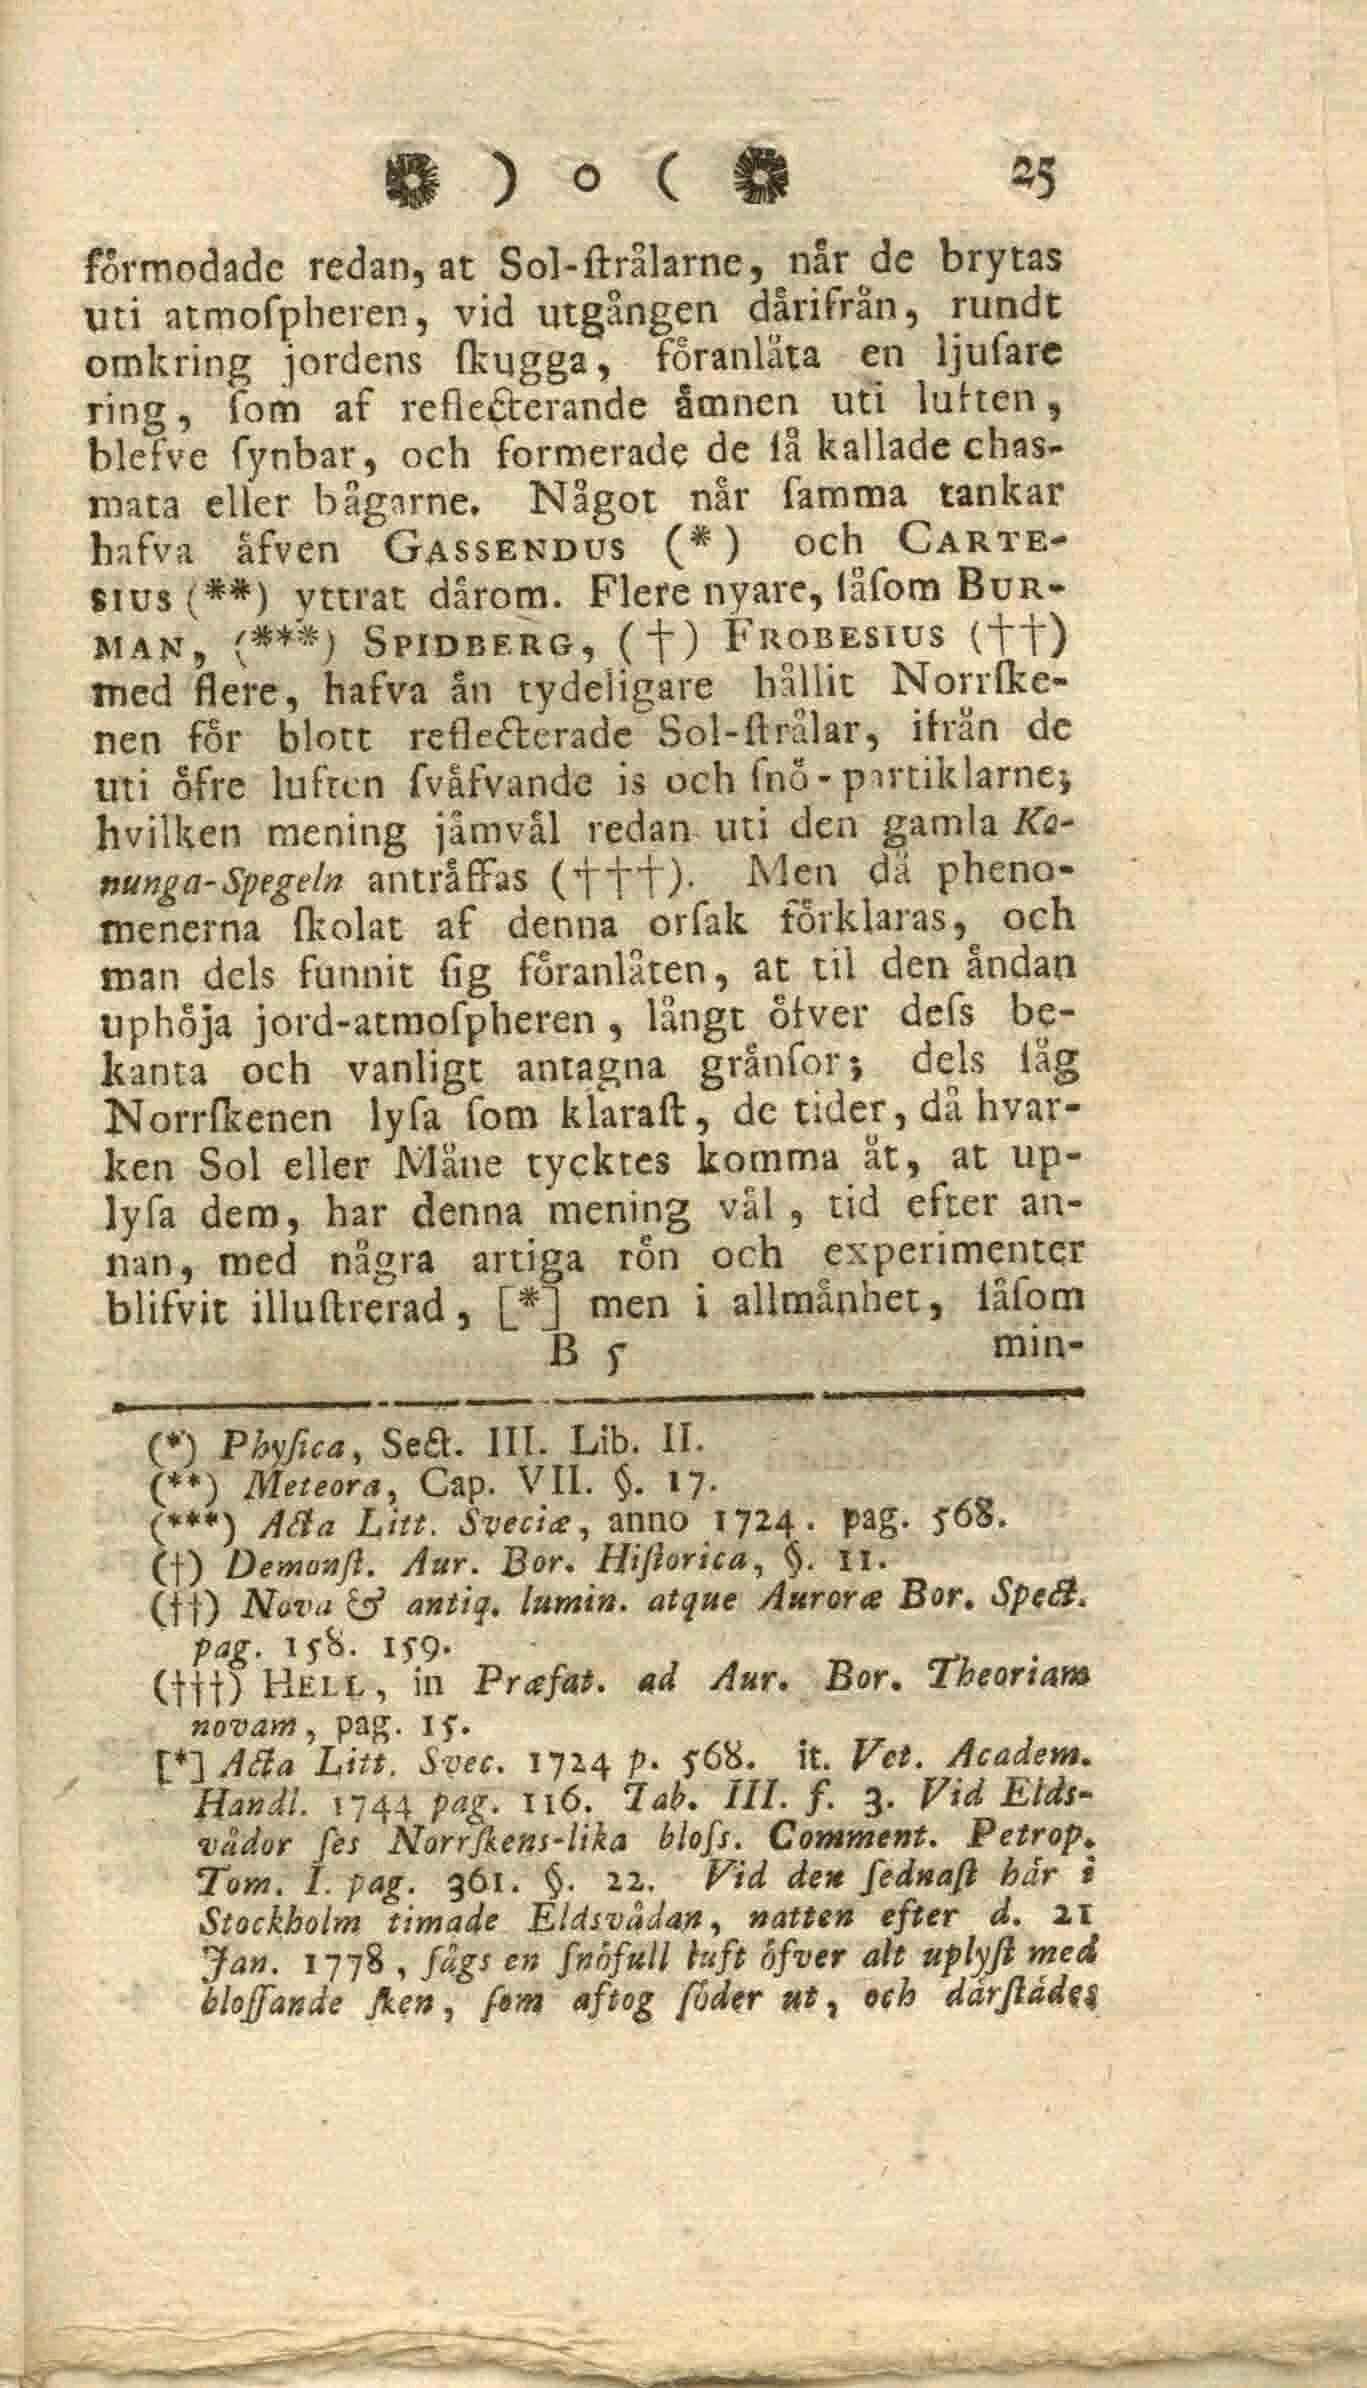 ) o ( 25
förmodade redan, at Sol-ſtrålarne, når de brytas
uti atmoſpheren, vid utgången dårifrån, rundt
omkring jordens ſkugga, föranlåta en ljuſare
ring, ſom af reflecterande åmnen uti luften,
blefve ſynbar, och formerade de ſå kallade chas-
mata eller bågarne. Något når ſamma tankar
hafva åfven GASSENDUS (*) och CARTE-
SIUS (**) yttrat dårom. Flere nyare, ſåſom BUR-
MAN, (***) SPIDBERG, (†) FROBESIUS (††)
med flere, hafva ån tydeligare hållit Norrſke-
nen för blott reflecterade Sol-ſtrålar, ifrån de
uti öfre luften ſvåfvande is och ſnö-partiklarne;
hvilken mening jåmvål redan uti den gamla Ko-
nunga-Spegeln antråffas (†††). Men då pheno-
menerna ſkolat af denna orſak förklaras, och
man dels funnit ſig föranlåten, at til den åndan
uphöja jord-atmoſpheren, långt öfver deſs be-
kanta och vanligt antagna grånſor; dels ſåg
Norrſkenen lyſa ſom klaraſt, de tider, då hvar-
ken Sol eller Måne tycktes komma åt, at up-
lyſa dem, har denna mening vål, tid efter an-
nan, med några artiga rön och experimenter
blifvit illuſtrerad, [*] men i allmånhet, ſåſom
B 5 min-
(*) Phyſica, Sect. III. Lib. II.
(**) Meteora, Cap. VII. §. 17.
(***) Acta Litt. Sveciæ, anno 1724. pag. 568.
(†) Demonſt. Aur. Bor. Hiſtorica, §. 11.
(††) Nova & antiq. lumin. atque Auroræ Bor. Spect.
pag. 158. 159.
(†††) HELL, in Præfat. ad Aur. Bor. Theoriam
novam, pag. 15.
[*] Acta Litt. Svec. 1724 p. 568. it. Vet. Academ.
Handl. 1744 pag. 116. Tab. III. f. 3. Vid Elds-
vådor ſes Norrſkens-lika bloſs. Comment. Petrop.
Tom. I. pag. 361. §. 22. Vid den ſednaſt hår i
Stockholm timade Eldsvådan, natten efter d. 21
Jan. 1778, ſågs en ſnöfull luft öfver alt uplyſt med
bloſſande ſken, ſom aftog ſöder ut, och dårſtådes